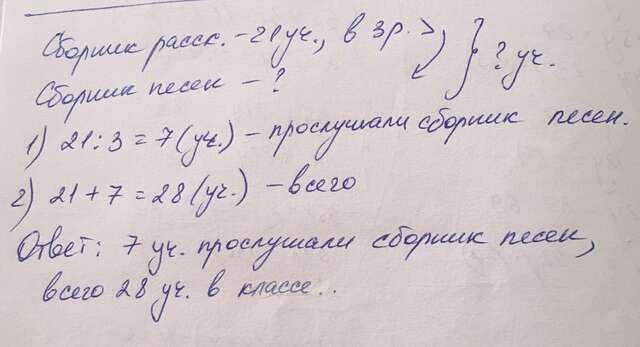 Сборник расск. - 21 уч., в 3 р. >, } ? уч.
Сборник песен - ?
1) 21 : 3 = 7 (уч.) - прослушали сборник песен.
2) 21 + 7 = 28 (уч.) - всего
Ответ: 7 уч. прослушали сборник песен,
всего 28 уч. в классе..